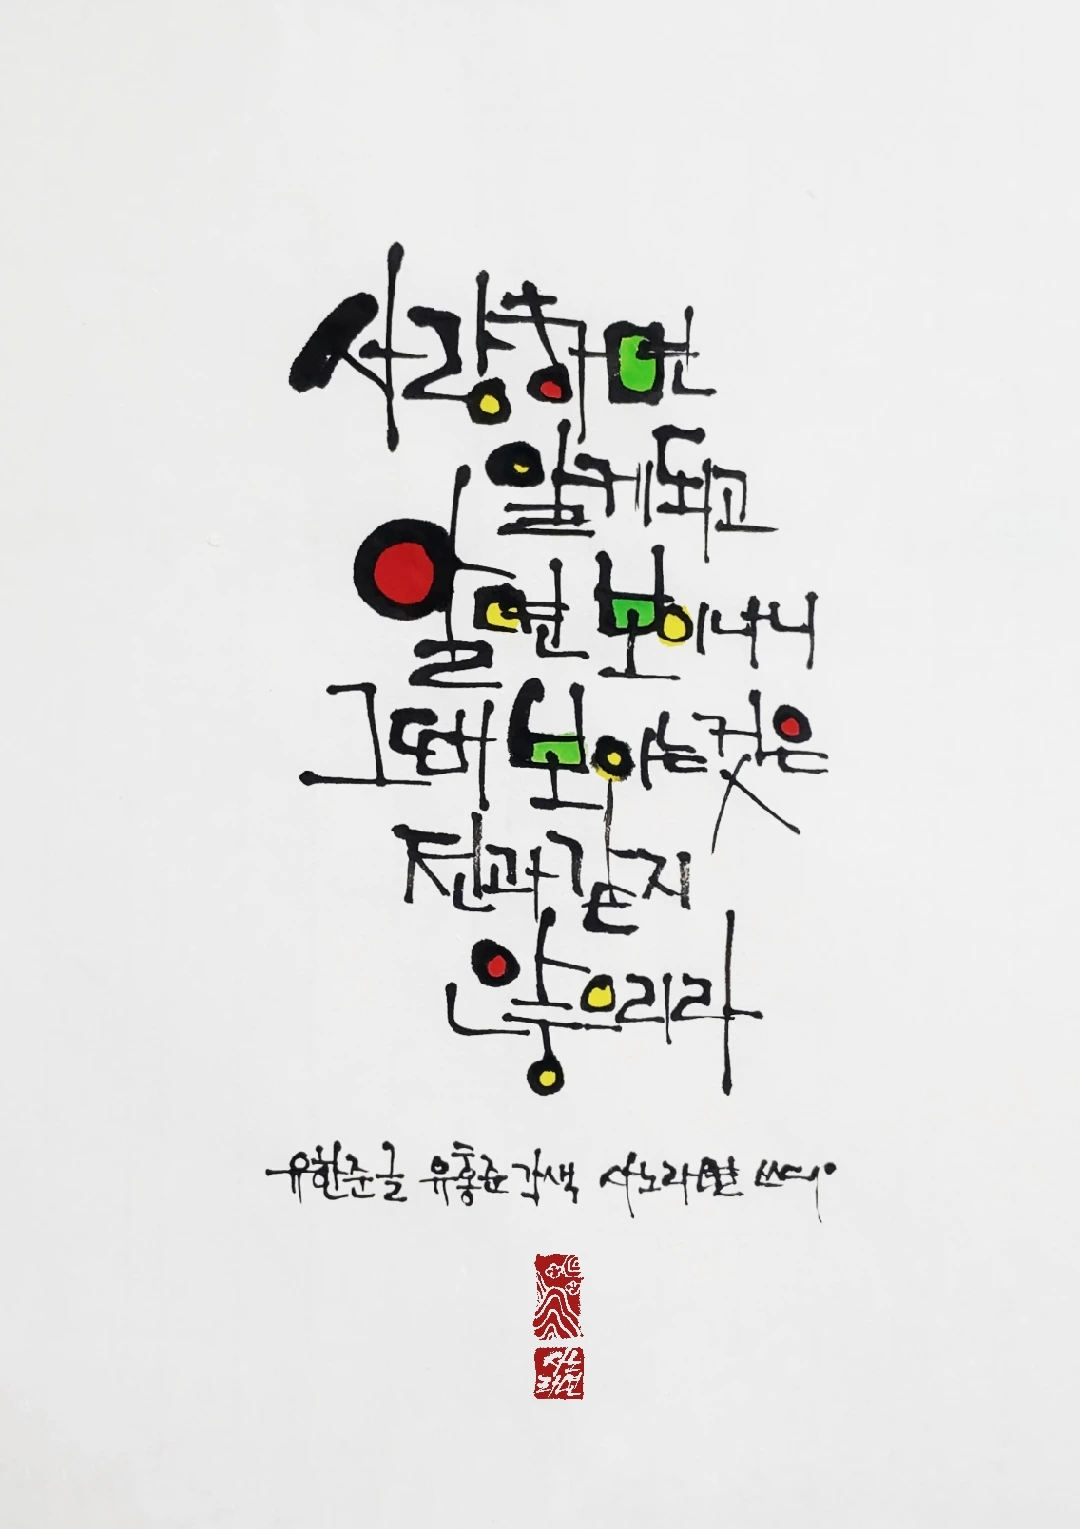 사랑하면
알게되고
알면 보이나니
그때 보이는것은
전과같지
않으리라
유한준 글 유홍준 각색 사노라면
사노
라면